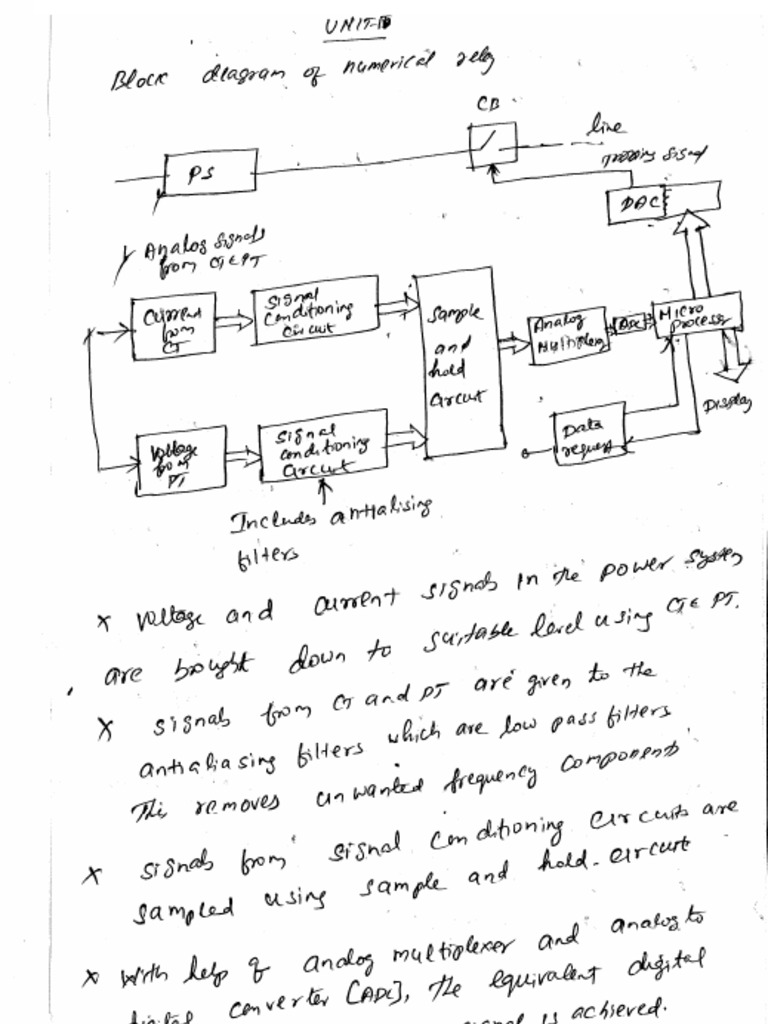 UNIT-III
Block diagram of numerical relay
CB
line
Tripping signal
PS
DAC
Analog signals
from CT & PT
Current
from
CT
Signal
conditioning
circuit
Sample
and
hold
circuit
Analog
Multiplexer
ADC
Micro
processor
Display
Voltage
from
PT
Signal
conditioning
circuit
Data
request
Includes antialising
filters
x Voltage and current signals in the power system
are brought down to suitable level using CT & PT.
x signals from CT and PT are given to the
antialiasing filters which are low pass filters
This removes unwanted frequency components
x signals from signal conditioning circuits are
sampled using sample and hold circuit
x With help of analog multiplexer and analog to
digital converter [ADC], the equivalent digital
signal is achieved.